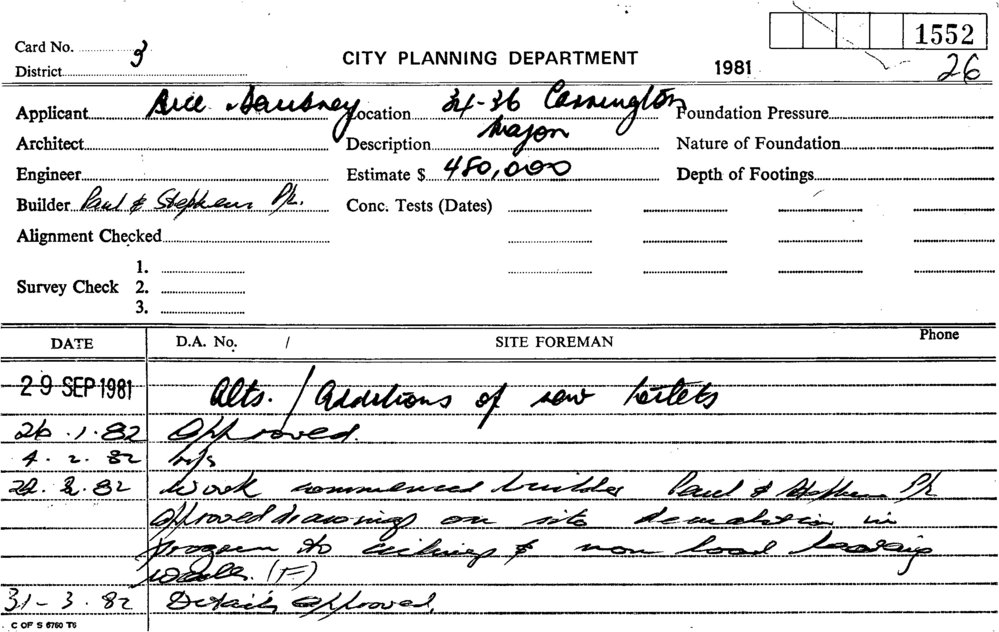 1552
Card No. 3
CITY PLANNING DEPARTMENT 1981 26
District
Applicant Rice Daubney Location 34-36 Carrington Foundation Pressure
Architect Description Major Nature of Foundation
Engineer Estimate $ 480,000 Depth of Footings
Builder Paul & Stephens P/L. Conc. Tests (Dates)
Alignment Checked
1.
Survey Check 2.
3.
DATE D.A. No. / SITE FOREMAN Phone
29 SEP 1981 Alts. / Additions of new toilets
26.1.82 Approved.
4.2.82 w/s
22.2.82 Work commenced builder Paul & Stephens P/L
approved drawings on site demolition in
progress to ceilings & non load bearing
walls. (F)
31-3.82 Details approved.
C OF S 6760 T6